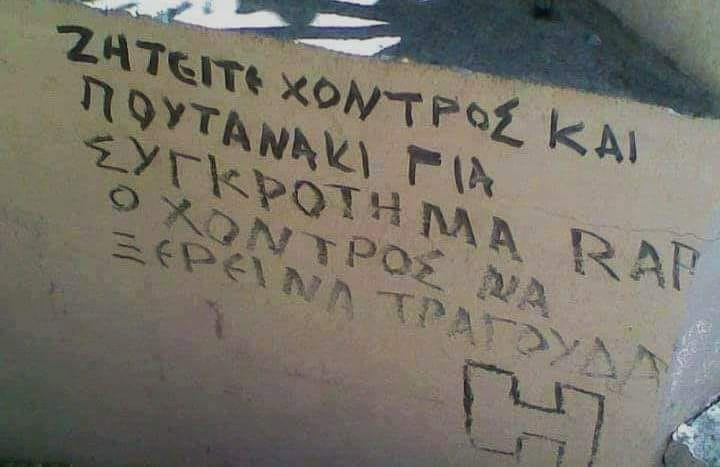 ΖΗΤΕΙΤΕ ΧΟΝΤΡΟΣ ΚΑΙ
ΠΟΥΤΑΝΑΚΙ ΓΙΑ
ΣΥΓΚΡΟΤΗΜΑ RAP
Ο ΧΟΝΤΡΟΣ ΝΑ
ΞΕΡΕΙ ΝΑ ΤΡΑΓΟΥΔΑ
H